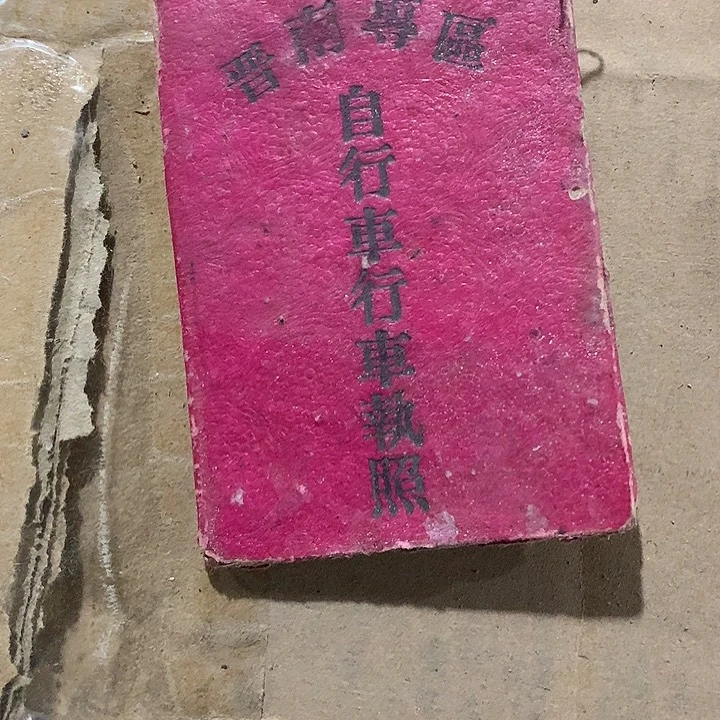 晋南專區
自行車行車執照